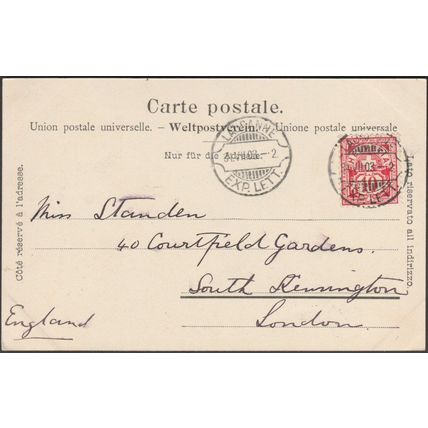 Carte postale.
Union postale universelle. – Weltpostverein. – Unione postale universale
Nur für die Adresse.
LAUSANNE
EXP. LETT.
Côté réservé à l'adresse.
Lato riservato all indirizzo.
Miss Standen
40 Courtfield Gardens.
South Kensington
London.
England